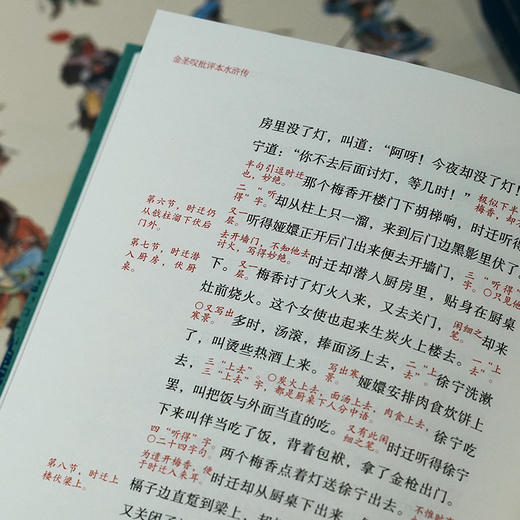 金圣叹批评本水浒传
房里没了灯，叫道：“阿呀！今夜却没了灯！
宁道：“你不去后面讨灯，等几时！”
半句引退时迁也，妙绝。
极似下半
梅香，却
那个梅香开楼门下胡梯响，时迁听得
二“听得”字。
却从柱上只一溜，来到后门边黑影里伏了
第六节，时迁仍从戗柱溜下伏后门外。
又一层。
听得娅嬛正开后门出来便去开墙门，
去开墙门，不知他去讨火，写得妙绝。
时迁却潜入厨房里，贴身在厨桌
第七节，时迁潜入厨房，伏厨桌。
下。
又一层。
梅香讨了灯火入来，又去关门，
闲细之笔。
三“听得”字。
〇只见他
却来
灶前烧火。这个女使也起来生炭火上楼去。
一“上去”。
〇又写出寒景。
多时，汤滚，捧面汤上去，
二“上去”。
徐宁洗漱
了，叫烫些热酒上来。
写出寒景。
娅嬛安排肉食炊饼上
去，
三“上去”。
〇炭火上去，面汤上去，肉食上去，三“上去”字，都是厨桌下人分中语。
徐宁吃
罢，叫把饭与外面当直的吃。
又有此闲细之笔。
时迁听得徐宁
四“听得”字。〇二十四字句。
下来叫伴当吃了饭，背着包袱，拿了金枪出门。
两个梅香点着灯送徐宁出去。
为遣开梅香，便于时迁入来耳。
不惟时
时迁却从厨桌下出来，
第八节，时迁上楼伏梁上。
槅子边直踅到梁上，却
又关闭了